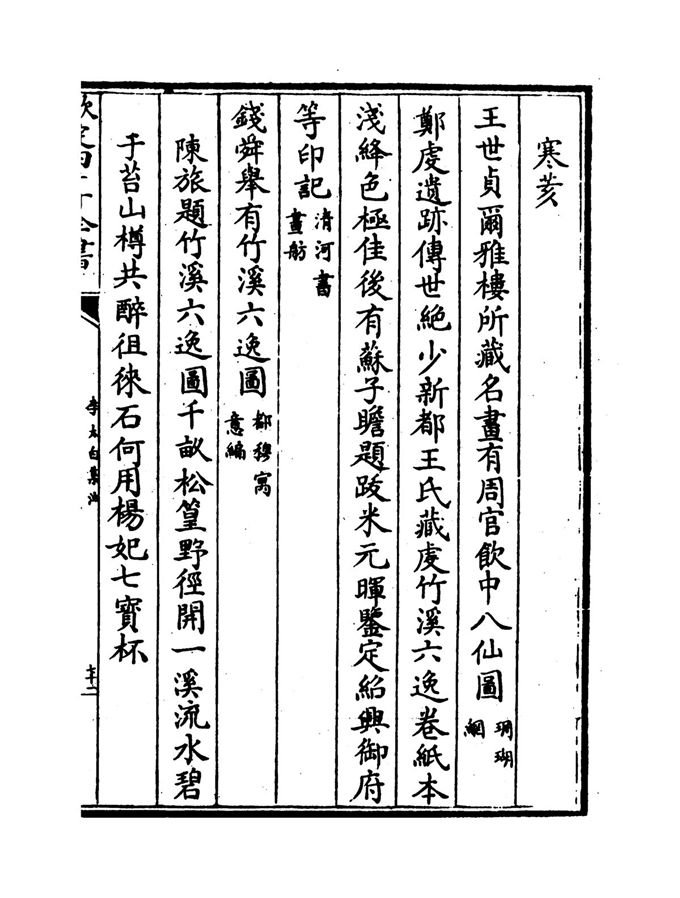 寒荄
王世貞爾雅樓所藏名畫有周官飲中八仙圖珊瑚網
鄭虔遺跡傳世絶少新都王氏藏虔竹溪六逸卷紙本
淺絳色極佳後有蘇子瞻題跋米元暉鑒定紹興御府
等印記清河書畫舫
錢舜舉有竹溪六逸圖都穆寓意編
陳旅題竹溪六逸圖千畝松篁野徑開一溪流水碧
于苔山樽共醉徂徠石何用楊妃七寳杯
欽定四庫全書
李太白集注